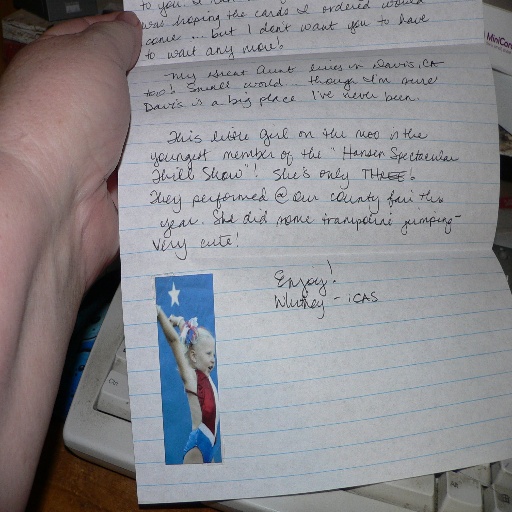 to you. I
was hoping the cards I ordered would
come ... but I don't want you to have
to wait any more!
My Great Aunt lives in Davis, CA
too! Small world ... though I'm sure
Davis is a big place I've never been.
This little girl on the moo is the
youngest member of the "Hansen Spectacular
Thrill Show"! She's only THREE!
They performed @ our county fair this
year. She did some trampoline jumping-
very cute!
Enjoy!
Whitney - iCAS
MiniCon
Alt
Ctrl